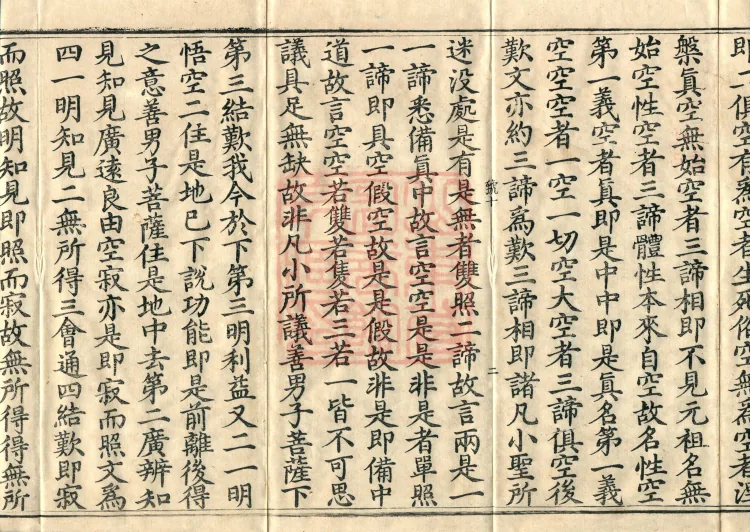 即二俱空有為空者生死俗空無為空者涅
槃真空無始空者三諦相即不見元祖名無
始空性空者三諦體性本來自空故名性空
第一義空者真即是中中即是真名第一義
空空空者一空一切空大空者三諦俱空後
歎文亦約三諦為歎三諦相即諸凡小聖所
迷沒處是有是無者雙照二諦故言兩是一
一諦悉備真中故言空空是是非是者單照
一諦即具空假空故是是假故非是即備中
道故言空空若雙若隻若三若一皆不可思
議具足無缺故非凡小所議善男子菩薩下
第三結歎我今於下第三明利益又二一明
悟空二住是地已下說功能即是前離後得
之意善男子菩薩住是地中去第二廣辨知
見知見廣遠良由空寂亦是即寂而照文為
四一明知見二無所得三會通四結歎即寂
而照故明知見即照而寂故無所得得無所